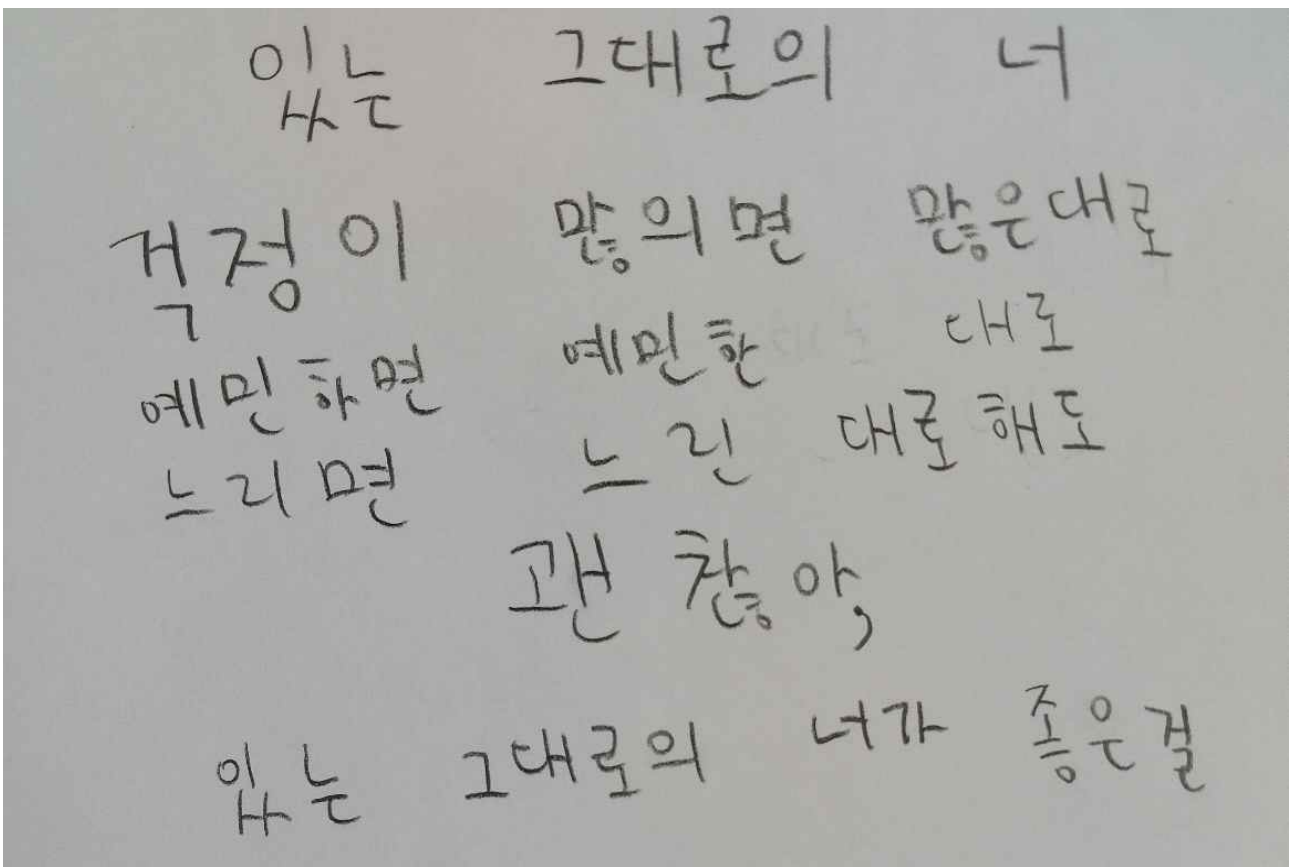 있는 그대로의 너
걱정이 많의면 많은대로
예민하면 예민한 대로
느리면 느린 대로해도
괜찮아,
있는 그대로의 너가 좋은걸